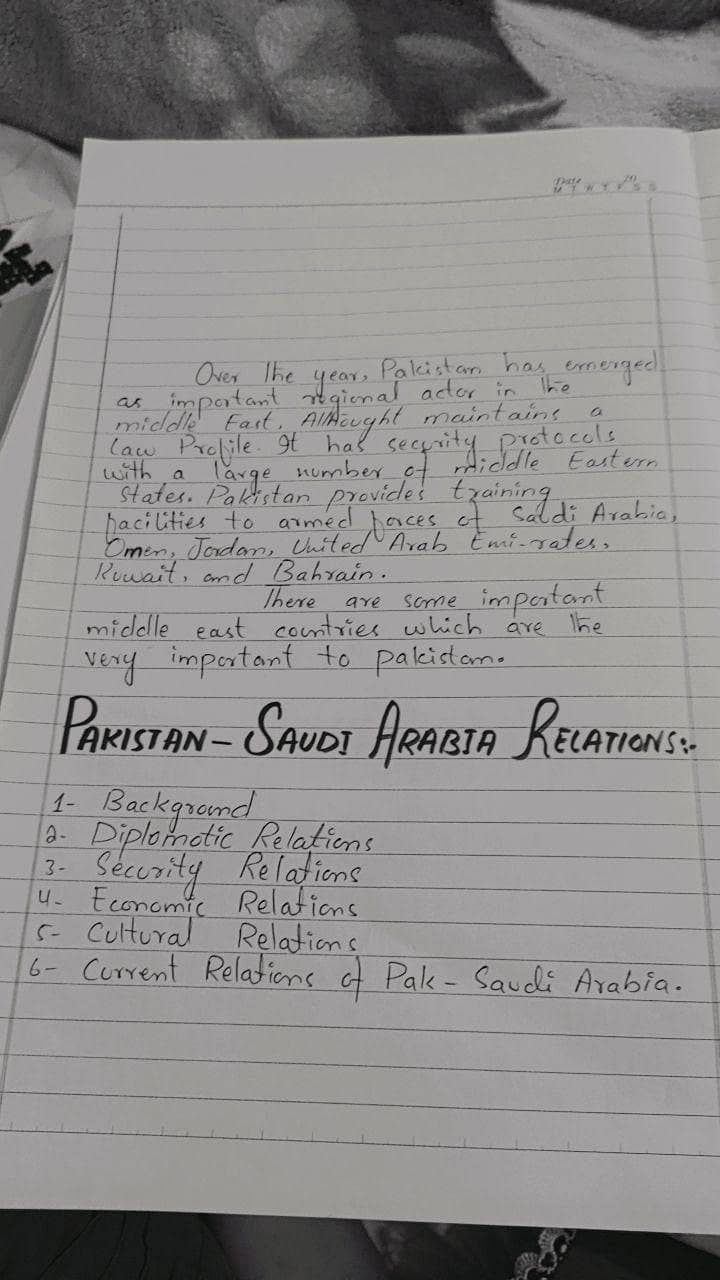 Date 20
M T W T F S S
Over the years, Pakistan has emerged
as important regional actor in the
middle East. Althought maintains a
law Profile. It has security protocols
with a large number of middle Eastern
States. Pakistan provides training
facilities to armed forces of Saudi Arabia,
Omen, Jordan, United Arab Emi-rates,
Kuwait, and Bahrain.
There are some important
middle east countries which are the
very important to pakistan.
PAKISTAN - SAUDI ARABIA RELATIONS:-
1- Background
2- Diplomatic Relations
3- Security Relations
4- Economic Relations
5- Cultural Relations
6- Current Relations of Pak - Saudi Arabia.